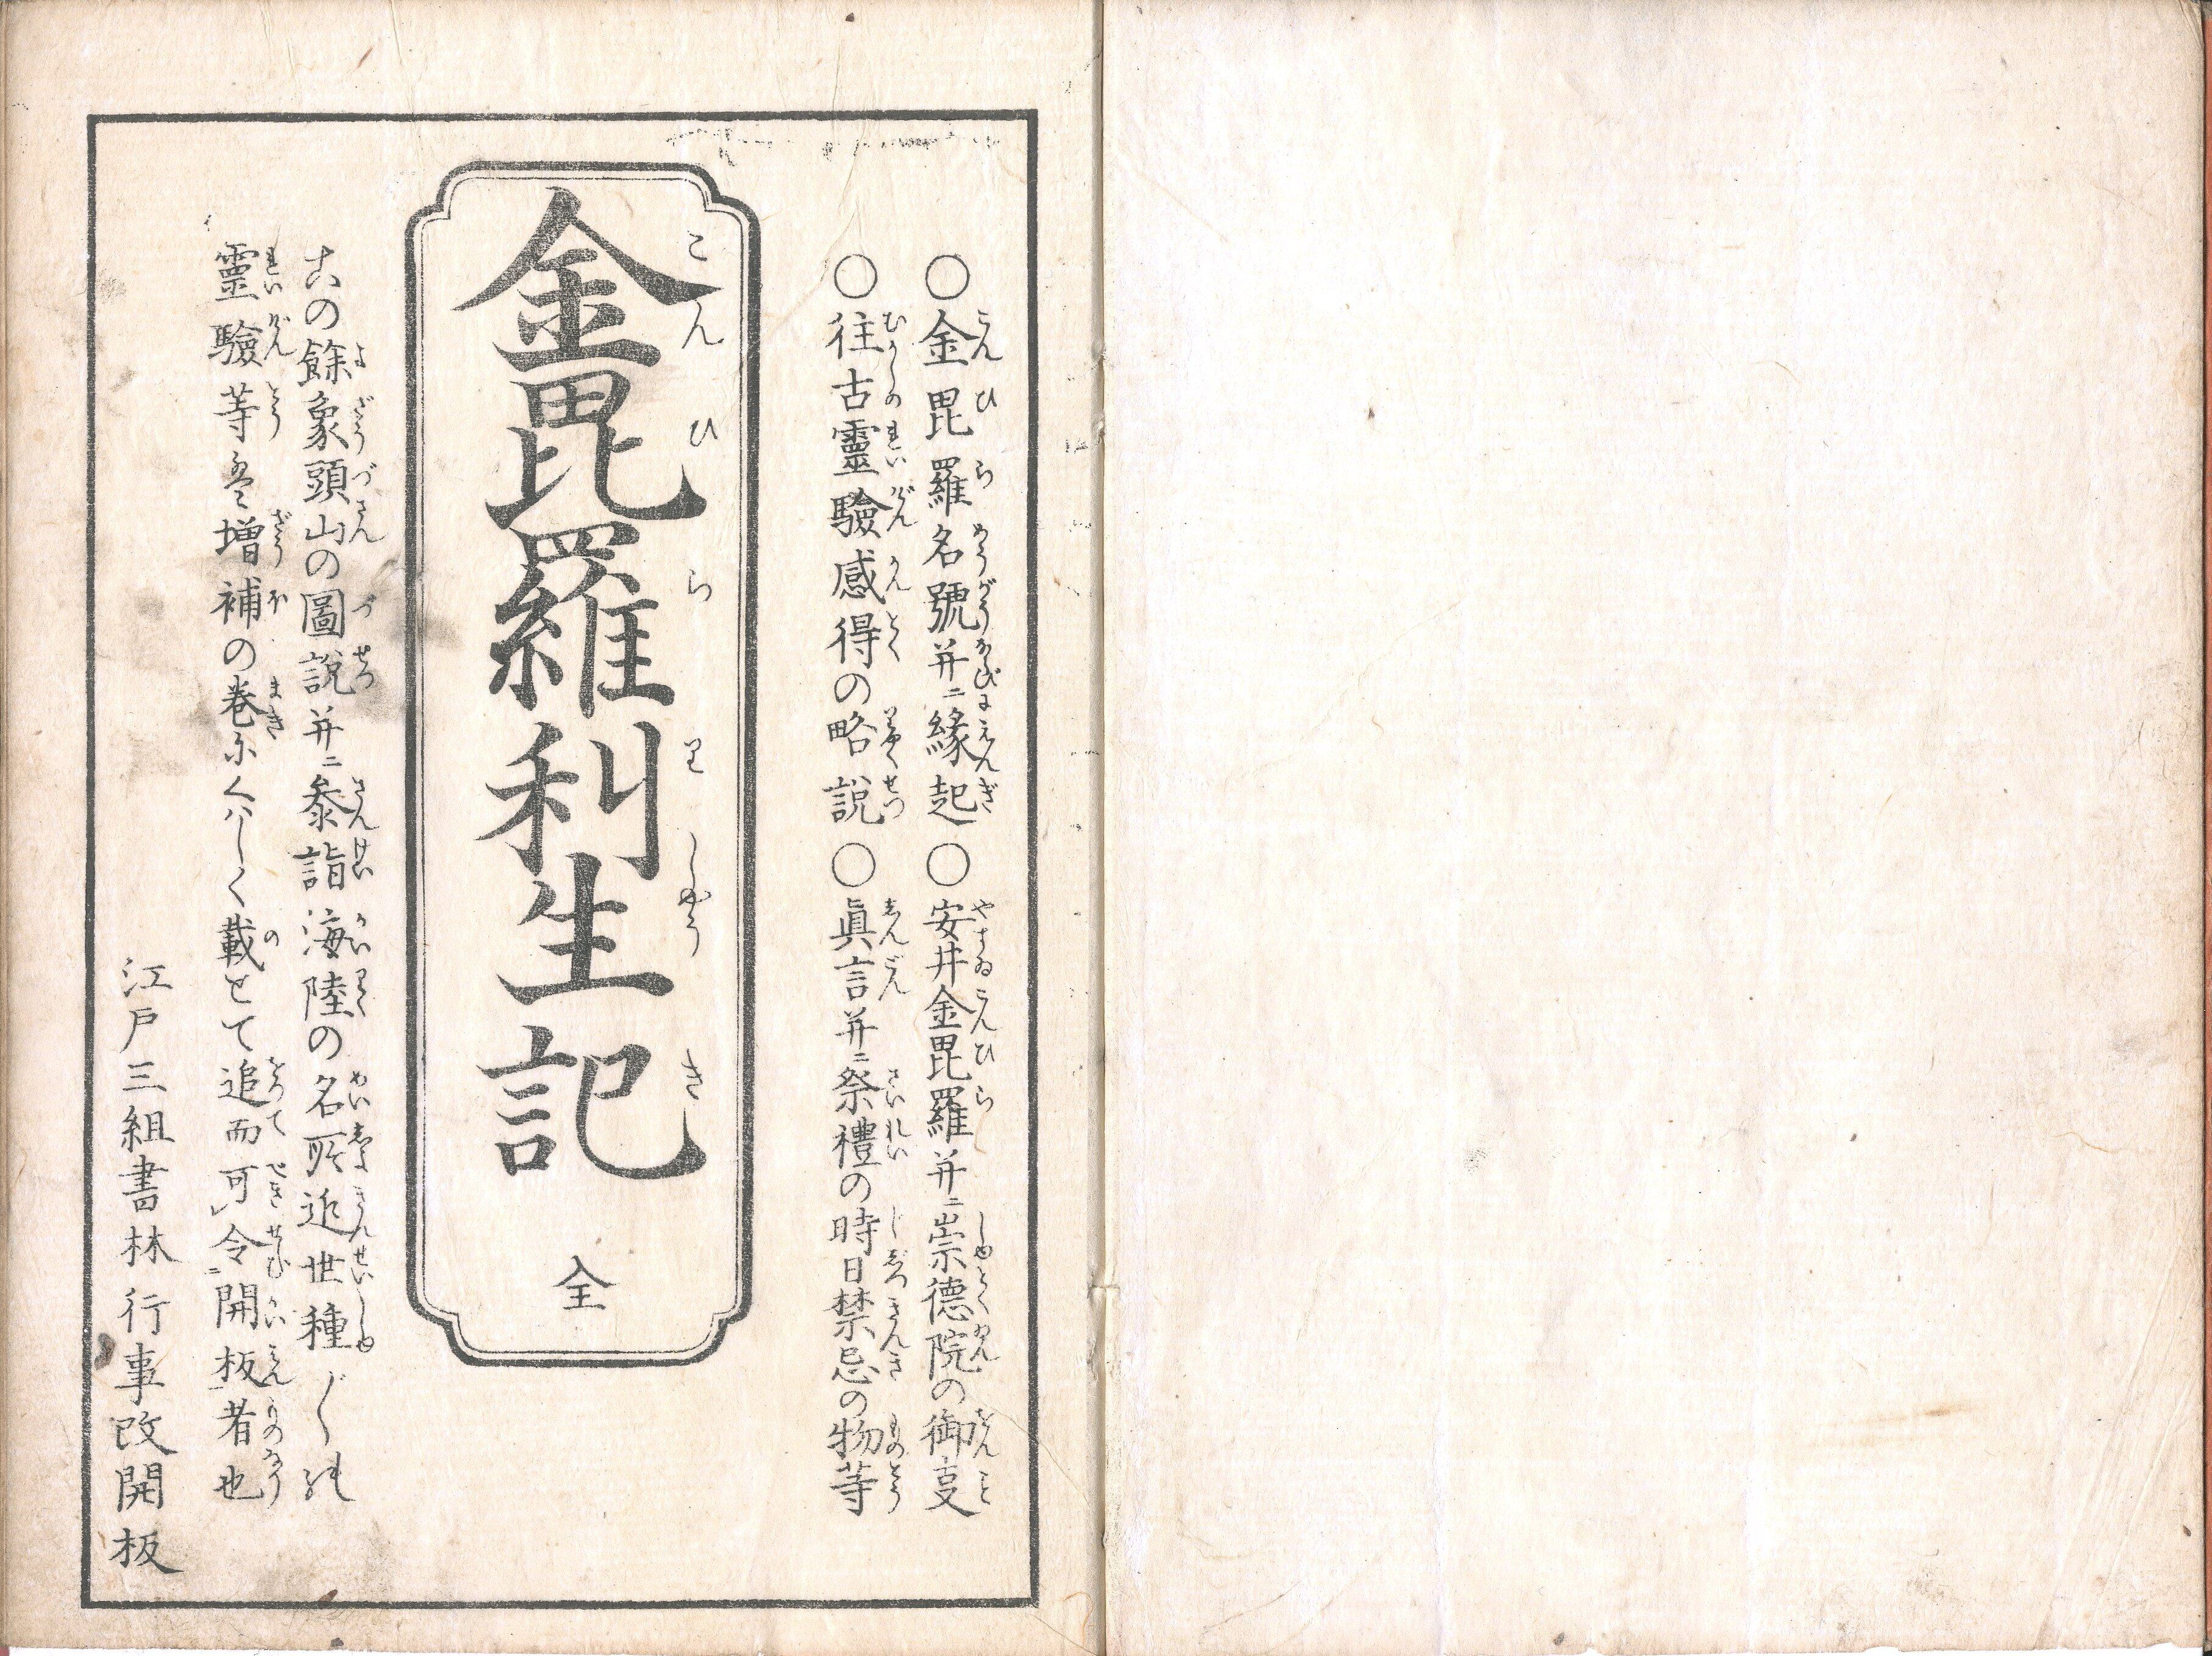 ○金毘羅名號并ニ縁起○安井金毘羅并ニ崇德院の御㕝
○往古靈驗感得の略説○眞言并ニ祭禮の時日禁忌の物等
金毘羅利生記 全
この餘象頭山の圖説并ニ参詣海陸の名所近世種〴〵の
靈驗等は増補の巻にくはしく載せて追而可レ令ニ開板一者也
江戸三組書林行事改開板